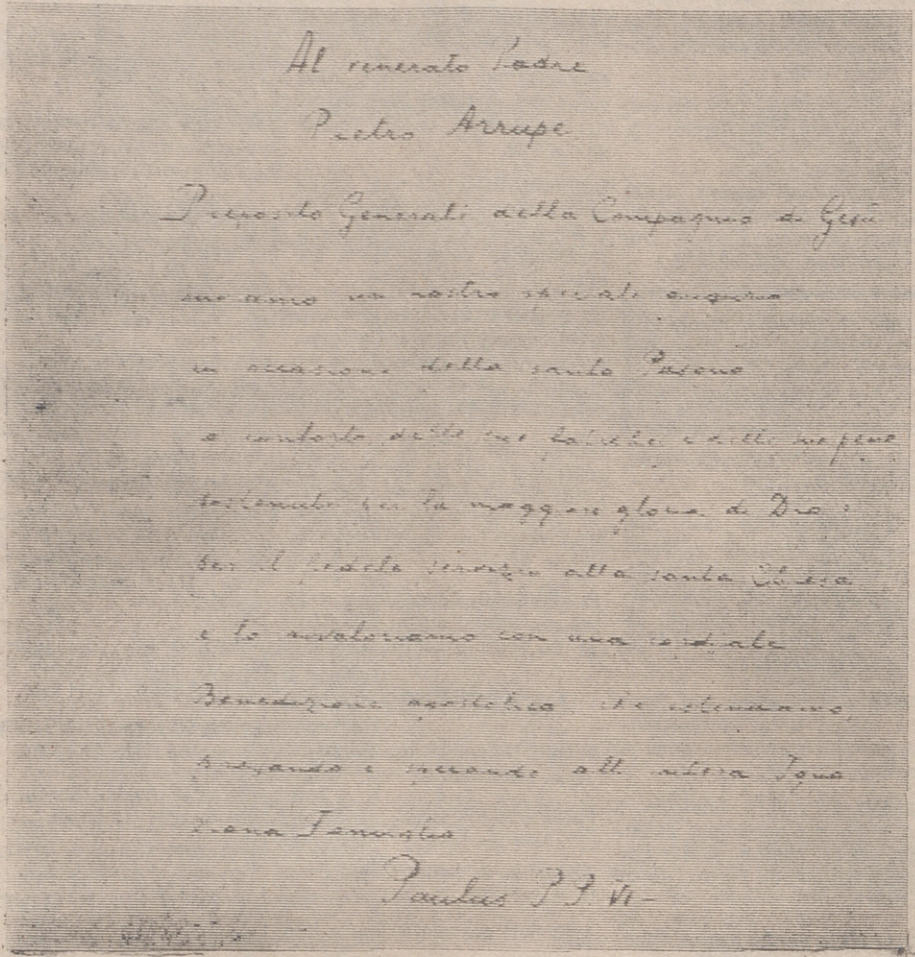 Al venerato Padre
Pietro Arrupe
Preposito Generale della Compagnia di Gesù
inviamo un nostro speciale augurio
in occasione della santa Pasqua
a conforto delle sue fatiche e delle sue pene
sostenute per la maggiore gloria di Dio
per il fedele servizio alla santa Chiesa
e lo avvaloriamo con una cordiale
Benedizione apostolica che estendiamo,
pregando e sperando all'intera Igna
ziana Famiglia
Paulus PP. VI -